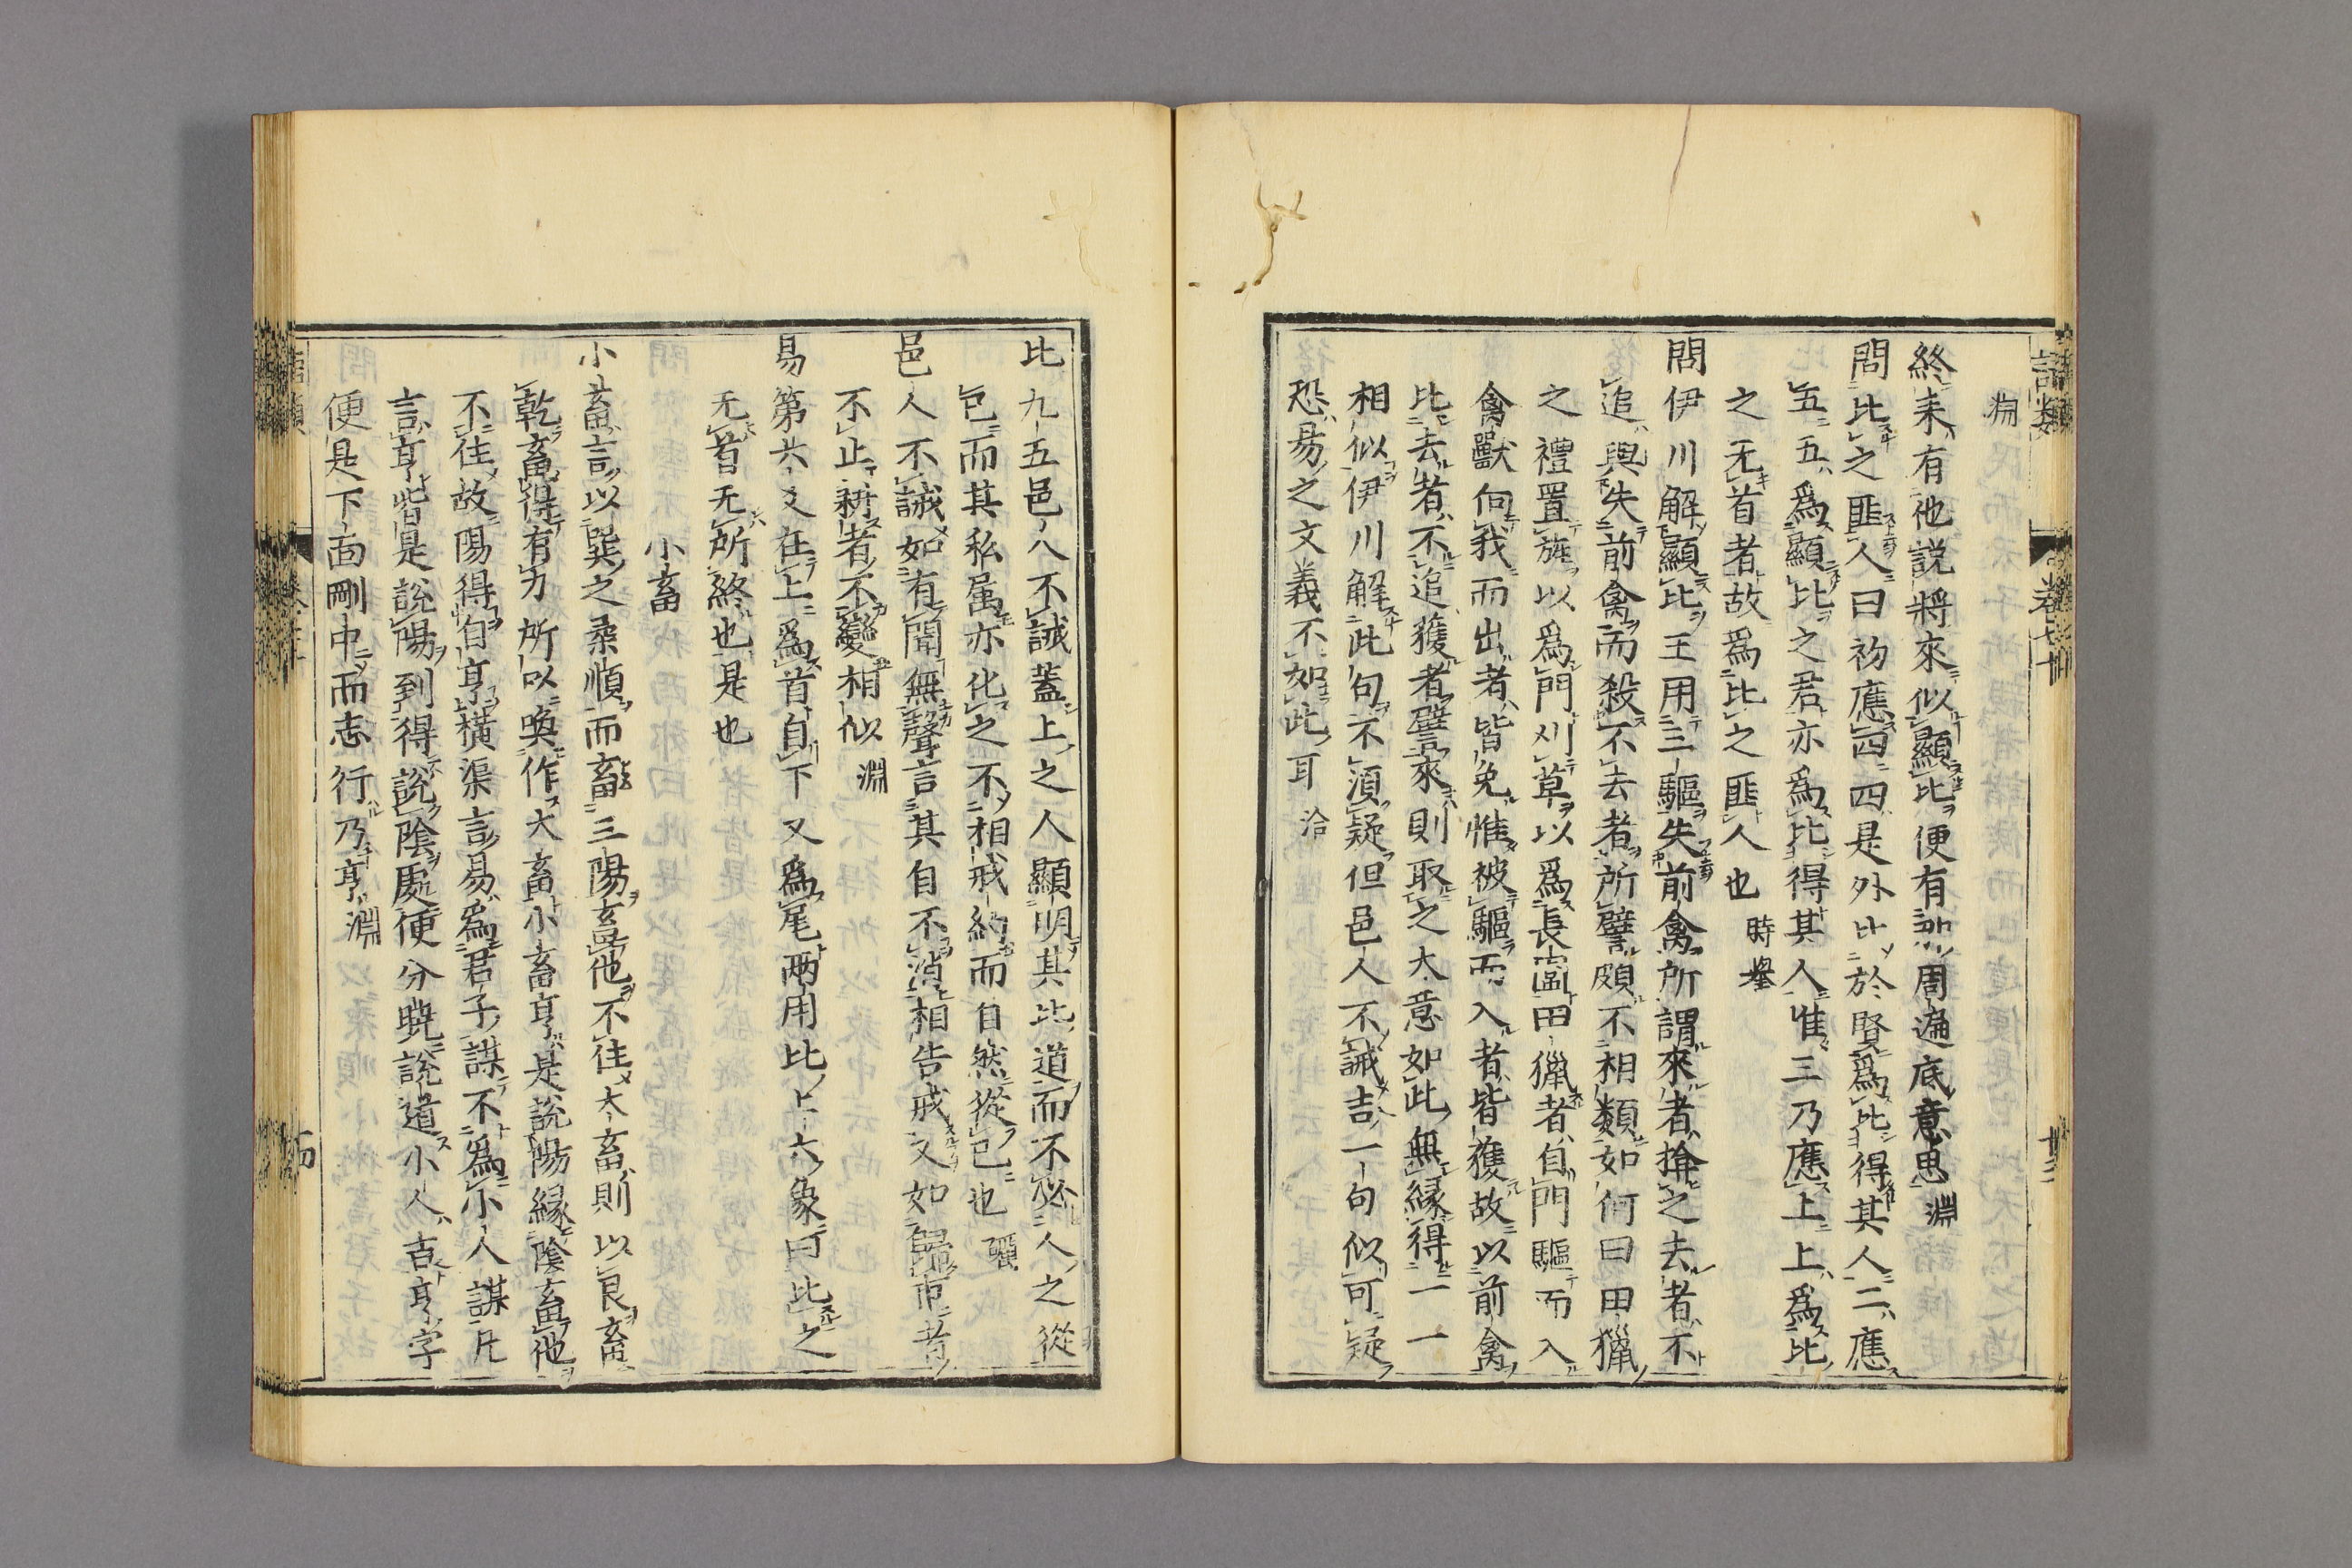 淵
終來有他説將來似顯比便有那周遍底意思 淵
問比之匪人曰初應四四是外比於賢爲比得其人二應
五五爲顯比之君亦爲比得其人惟三乃應上上爲比
之无首者故爲比之匪人也 時擧
問伊川解顯比王用三驅失前禽所謂來者揜之去者不
追與失前禽而殺不去者所譬頗不相類如何曰田獵
之禮置旃以爲門刈草以爲長圍田獵者自門驅而入
禽獸向我而出者皆免惟被驅而入者皆獲故以前禽
比去者不追獲者譬來則取之大意如此無緣得一一
相似伊川解此句不須疑但邑人不誡吉一句似可疑
恐易之文義不如此耳 洽
比九五邑人不誡蓋上之人顯明其比道而不必人之從
已而其私屬亦化之不相戒約而自然從已也
邑人不誡如有聞無聲言其自不消相告戒又如歸市者
不止耕者不變相似 淵
易第六爻在上爲首自下又爲尾兩用比上六象曰比之
无首无所終也是也
小畜
小畜言以巽之柔順而畜三陽畜他不住大畜則以艮畜
乾畜得有力所以喚作大畜小畜亨是說陽緣陰畜他
不住故陽得自亨橫渠言易爲君子謀不爲小人謀凡
言亨皆是說陽到得說陰處便分曉說道小人吉亨字
便是下面剛中而志行乃亨 淵